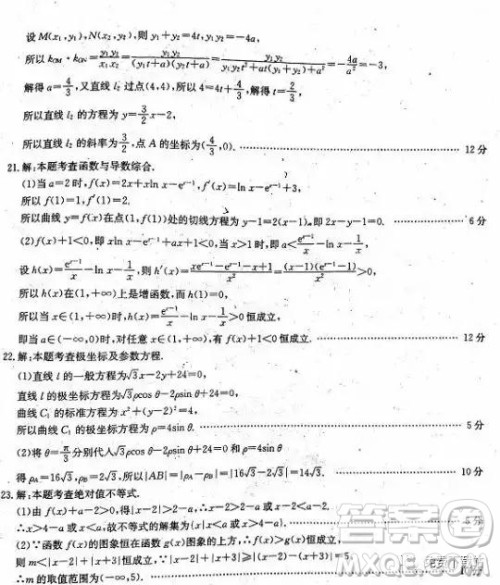 设 M(x₁,y₁),N(x₂,y₂),则 y₁+y₂=4t,y₁y₂=-4a,
所以 k_OM·k_ON=y₁y₂/x₁x₂=y₁y₂/(y₁t+a)(y₂t+a)=y₁y₂/(y₁y₂t²+at(y₁+y₂)+a²)=-4a/a²=-3,
解得 a=4/3,又直线 l₂ 过点(4,4),所以 4=4t+4/3,解得 t=2/3,
所以直线 l₂ 的方程为 y=3/2x-2,
所以直线 l₂ 的斜率为 3/2,点 A 的坐标为(4/3,0). 12 分
21.解:本题考查函数与导数综合.
(1)当 a=2 时,f(x)=2x+xln x-eˣ⁻¹,f′(x)=ln x-eˣ⁻¹+3,
所以 f(1)=1,f′(1)=2.
所以曲线 y=f(x)在点(1,f(1))处的切线方程为 y-1=2(x-1),即 2x-y-1=0. 6 分
(2)f(x)+1<0,即 xln x-eˣ⁻¹+ax+1<0,当 x>1 时,即 a<eˣ⁻¹-1/x-ln x,
设 h(x)=eˣ⁻¹-1/x-ln x,则 h′(x)=xeˣ⁻¹-eˣ⁻¹-x+1/x²=(x-1)(eˣ⁻¹-1)/x²>0,
所以 h(x)在(1,+∞)上是增函数,而 h(1)=0,
所以当 x∈(1,+∞)时,h(x)=eˣ⁻¹-1/x-ln x>0 恒成立,
即当 a∈(-∞,0)时,对任意 x∈(1,+∞),有 f(x)+1<0 恒成立. 12 分
22.解:本题考查极坐标及参数方程.
(1)直线 l 的一般方程为√3x-2y+24=0,
直线 l 的极坐标方程为√3ρcos θ-2ρsin θ+24=0,
曲线 C₁ 的标准方程为 x²+(y-2)²=4,
所以曲线 C₁ 的极坐标方程为 ρ=4sin θ. 5 分
(2)将 θ=π/3 分别代入√3ρcos θ-2ρsin θ+24=0,ρ=4sin θ
得 ρA=16√3,ρB=2√3,所以|AB|=|ρA-ρB|=|16√3-2√3|=14√3. 10 分
23.解:本题考查绝对值不等式.
(1)由 f(x)+a-2>0,得|x-2|>2-a,∴x-2>2-a 或 x-2<a-2,
∴x>4-a 或 x<a,故不等式的解集为(x|x>4-a 或 x<a).
(2)∵函数 f(x)的图象恒在函数 g(x)图象的上方,∴f(x)>g(x)恒成立,
则 m<|x-2|+|x+3|恒成立,∵|x-2|+|x+3|≥|(x-2)-(x+3)|=5,
∴m 的取值范围为(-∞,5).